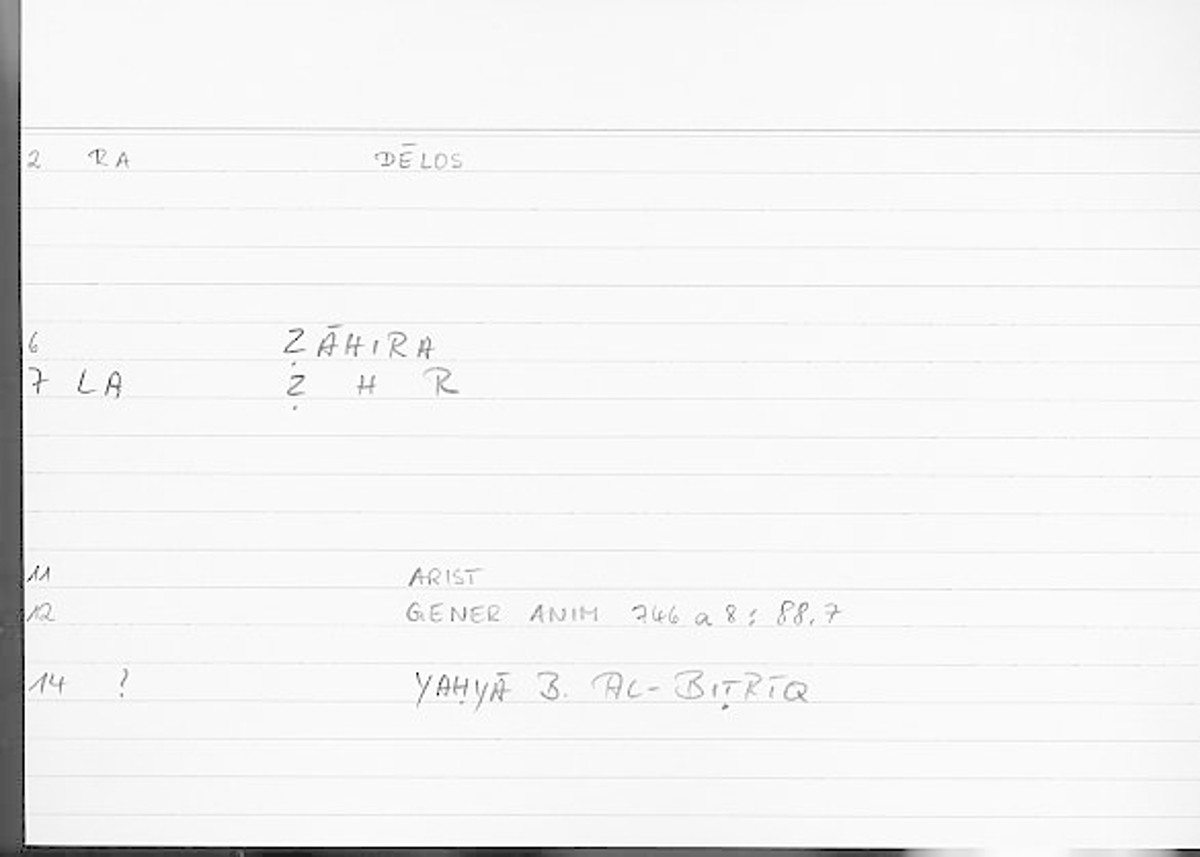 2 RA DĒLOS
6 ẒĀHIRA
7 LA Ẓ H R
11 ARIST
12 GENER ANIM 746 a 8 : 88.7
14 ? YAḤYĀ B. AL-BIṬRĪQ